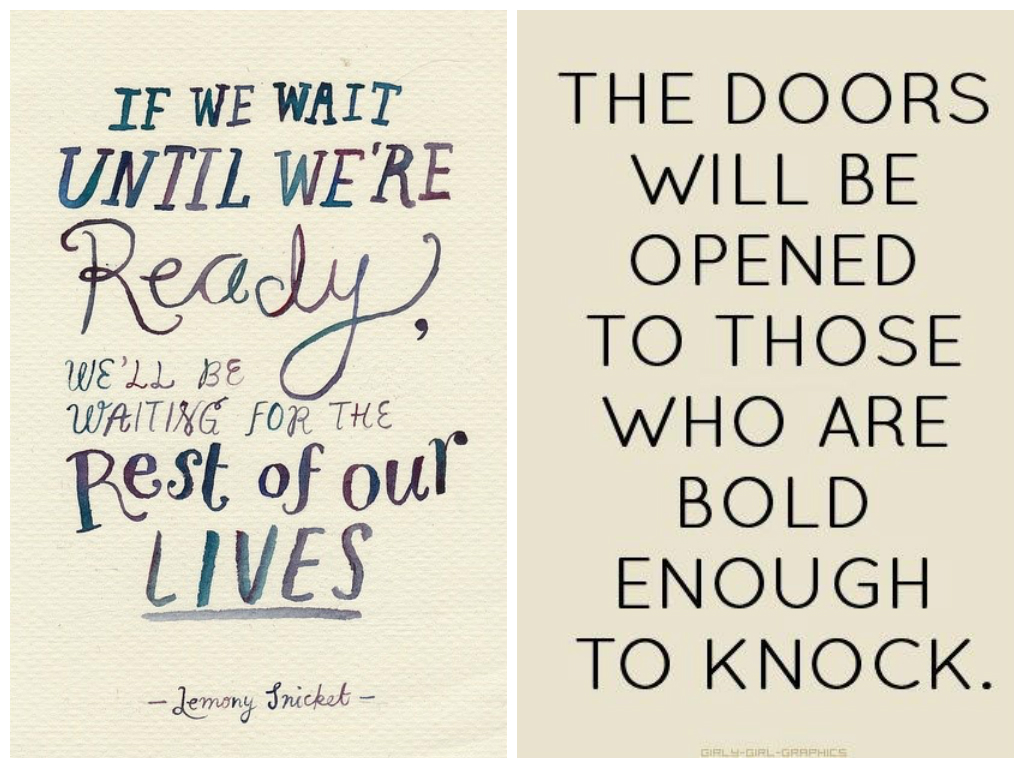 IF WE WAIT
UNTIL WE'RE
Ready,
WE'LL BE
WAITING FOR THE
Rest of our
LIVES
— Lemony Snicket —
THE DOORS
WILL BE
OPENED
TO THOSE
WHO ARE
BOLD
ENOUGH
TO KNOCK.
GIRLY-GIRL-GRAPHICS